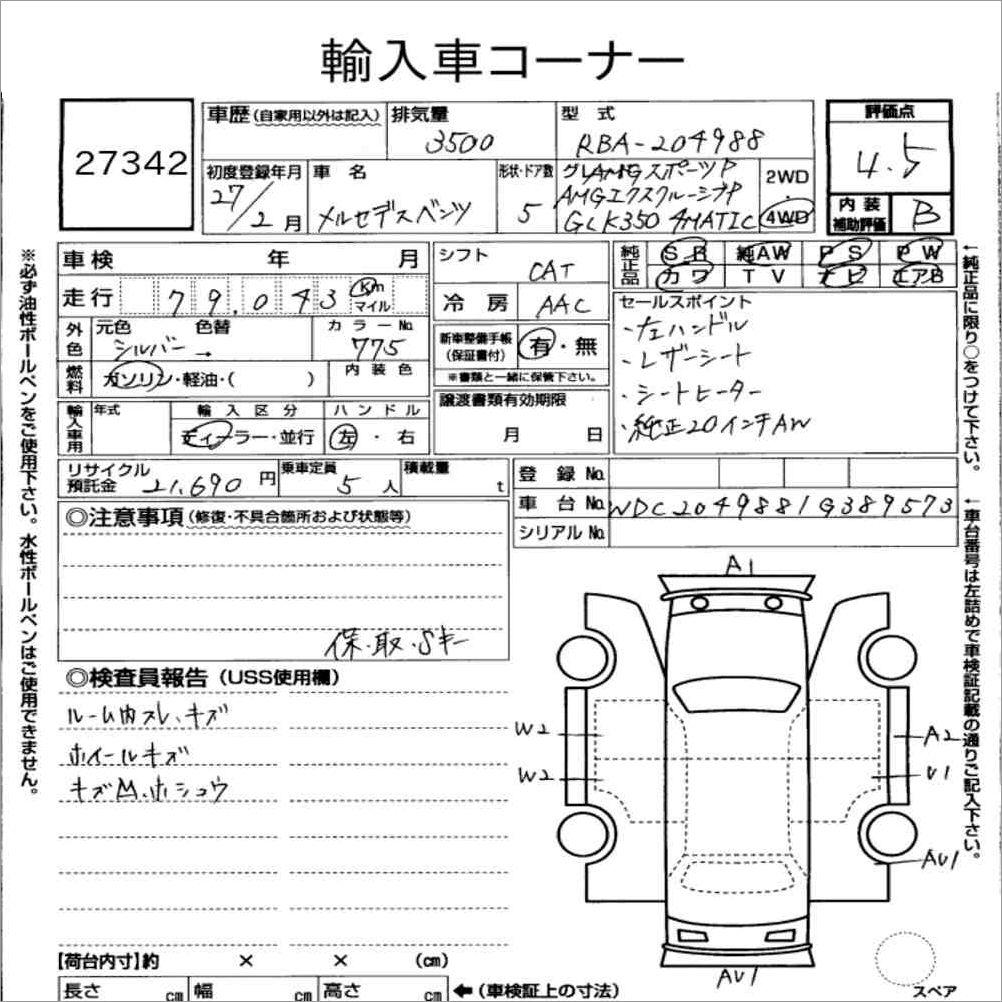 輸入車コーナー
27342
車歴 (自家用以外は記入) 排気量 3500 型式 RBA-204988 評価点 4.5
初度登録年月 27/2月 車名 メルセデスベンツ 形状・ドア数 5
グレAMGスポーツP
AMGエクスクルーシブP
GLK350 4MATIC
2WD・4WD
内装補助評価 B
車検 年 月 シフト CAT
純正品 SR 純AW PS PW
カワ TV ナビ エアB
走行 79,043 Km マイル 冷房 AAC
外色 元色 シルバー → 色替 カラーNo. 775
燃料 ガソリン・軽油・( ) 内装色
新車整備手帳(保証書付) 有・無
※書類と一緒に保管下さい。
セールスポイント
・左ハンドル
・レザーシート
・シートヒーター
・純正20インチAW
輸入車用 年式 輸入区分 ディーラー・並行 ハンドル 左・右
譲渡書類有効期限 月 日
リサイクル預託金 21,690円 乗車定員 5人 積載量 t
登録No.
車台No. WDC2049881G389573
シリアルNo.
◎注意事項(修復・不具合箇所および状態等)
保・取・Sキー
◎検査員報告(USS使用欄)
ルーム内スレ、キズ
ホイールキズ
キズM、ホショウ
A1
W2
W2
A2
U1
AU1
AU1
スペア
【荷台内寸】約 × × (cm)
長さ cm 幅 cm 高さ cm ←(車検証上の寸法)
※必ず油性ボールペンをご使用下さい。水性ボールペンはご使用できません。
←純正品に限り○をつけて下さい。
←車台番号は左詰めで車検証記載の通りご記入下さい。